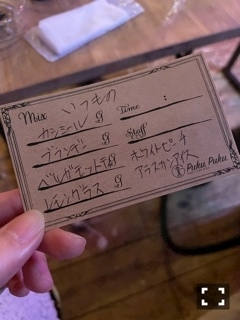 Mix いつもの Time :
カシミール g Staff
ブランデン g
ベルガモット g ホワイトピーチ
レモングラス g アラスカンアイス
Puku Puku